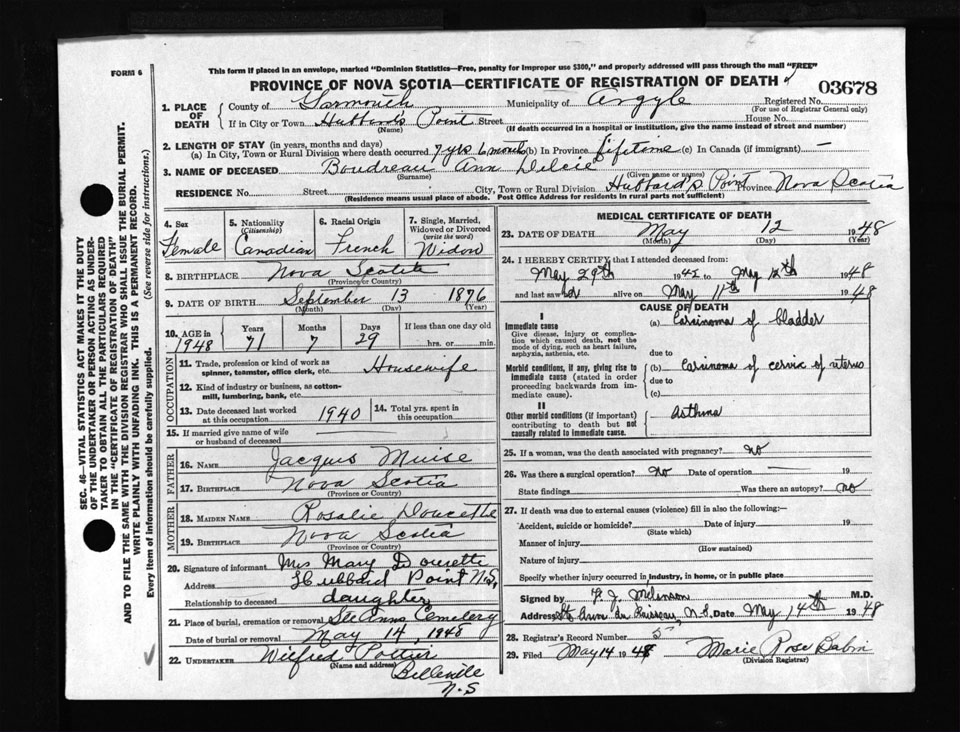 FORM 6
This form if placed in an envelope, marked "Dominion Statistics—Free, penalty for improper use $300," and properly addressed will pass through the mail "FREE"
PROVINCE OF NOVA SCOTIA—CERTIFICATE OF REGISTRATION OF DEATH
03678
1. PLACE OF DEATH
County of Yarmouth Municipality of Argyle Registered No.
(For use of Registrar General only)
If in City or Town Hubbard's Point Street House No.
(Name) (If death occurred in a hospital or institution, give the name instead of street and number)
2. LENGTH OF STAY (in years, months and days)
(a) In City, Town or Rural Division where death occurred 7 yrs 6 months (b) In Province Lifetime (c) In Canada (if immigrant) —
3. NAME OF DECEASED Boudreau Ann Delcie
(Surname) (Given name or names)
RESIDENCE No. Street City, Town or Rural Division Hubbard's Point Province Nova Scotia
(Residence means usual place of abode. Post Office Address for residents in rural parts not sufficient)
4. Sex Female
5. Nationality (Citizenship) Canadian
6. Racial Origin French
7. Single, Married, Widowed or Divorced (write the word) Widow
8. BIRTHPLACE Nova Scotia
(Province or Country)
9. DATE OF BIRTH September 13 1876
(Month) (Day) (Year)
10. AGE in 1948
Years 71
Months 7
Days 29
If less than one day old
hrs. or min.
OCCUPATION
11. Trade, profession or kind of work as spinner, teamster, office clerk, etc. Housewife
12. Kind of industry or business, as cotton-mill, lumbering, bank, etc.
13. Date deceased last worked at this occupation 1940
14. Total yrs. spent in this occupation
15. If married give name of wife or husband of deceased
FATHER
16. NAME Jacques Muise
17. BIRTHPLACE Nova Scotia
(Province or Country)
MOTHER
18. MAIDEN NAME Rosalie Doucette
19. BIRTHPLACE Nova Scotia
(Province or Country)
20. Signature of informant Mrs Mary Doucette
Address Hubbard Point N.S,
Relationship to deceased daughter
21. Place of burial, cremation or removal Ste Anns Cemetery
Date of burial or removal May 14, 1948
22. UNDERTAKER Wilfred Pottier
(Name and address)
Belleville
N.S
MEDICAL CERTIFICATE OF DEATH
23. DATE OF DEATH May 12 1948
(Month) (Day) (Year)
24. I HEREBY CERTIFY that I attended deceased from:
May 29th 1942 to May 12th 1948
and last saw alive on May 11th 1948
CAUSE OF DEATH
I
Immediate cause
Give disease, injury or complication which caused death, not the mode of dying, such as heart failure, asphyxia, asthenia, etc.
(a) Carcinoma of bladder
due to
Morbid conditions, if any, giving rise to immediate cause (stated in order proceeding backwards from immediate cause).
(b) Carcinoma of cervix of uterus
due to
(c)
II
Other morbid conditions (if important) contributing to death but not causally related to immediate cause.
Asthma
25. If a woman, was the death associated with pregnancy? no
26. Was there a surgical operation? no Date of operation — 19
State findings Was there an autopsy? no
27. If death was due to external causes (violence) fill in also the following:—
Accident, suicide or homicide? Date of injury 19
(State which)
Manner of injury
(How sustained)
Nature of injury
Specify whether injury occurred in industry, in home, or in public place
Signed by M.D.
Address St Anne du Ruisseau, N.S. Date May 14th 1948
28. Registrar's Record Number 5
29. Filed May 14 1948 Marie Rose Babin
(Division Registrar)
SEC. 46—VITAL STATISTICS ACT MAKES IT THE DUTY
OF THE UNDERTAKER OR PERSON ACTING AS UNDER-
TAKER TO OBTAIN ALL THE PARTICULARS REQUIRED
IN THE "CERTIFICATE OF REGISTRATION OF DEATH"
AND TO FILE THE SAME WITH THE DIVISION REGISTRAR WHO SHALL ISSUE THE BURIAL PERMIT.
WRITE PLAINLY WITH UNFADING INK. THIS IS A PERMANENT RECORD.
Every item of information should be carefully supplied. (See reverse side for instructions.)